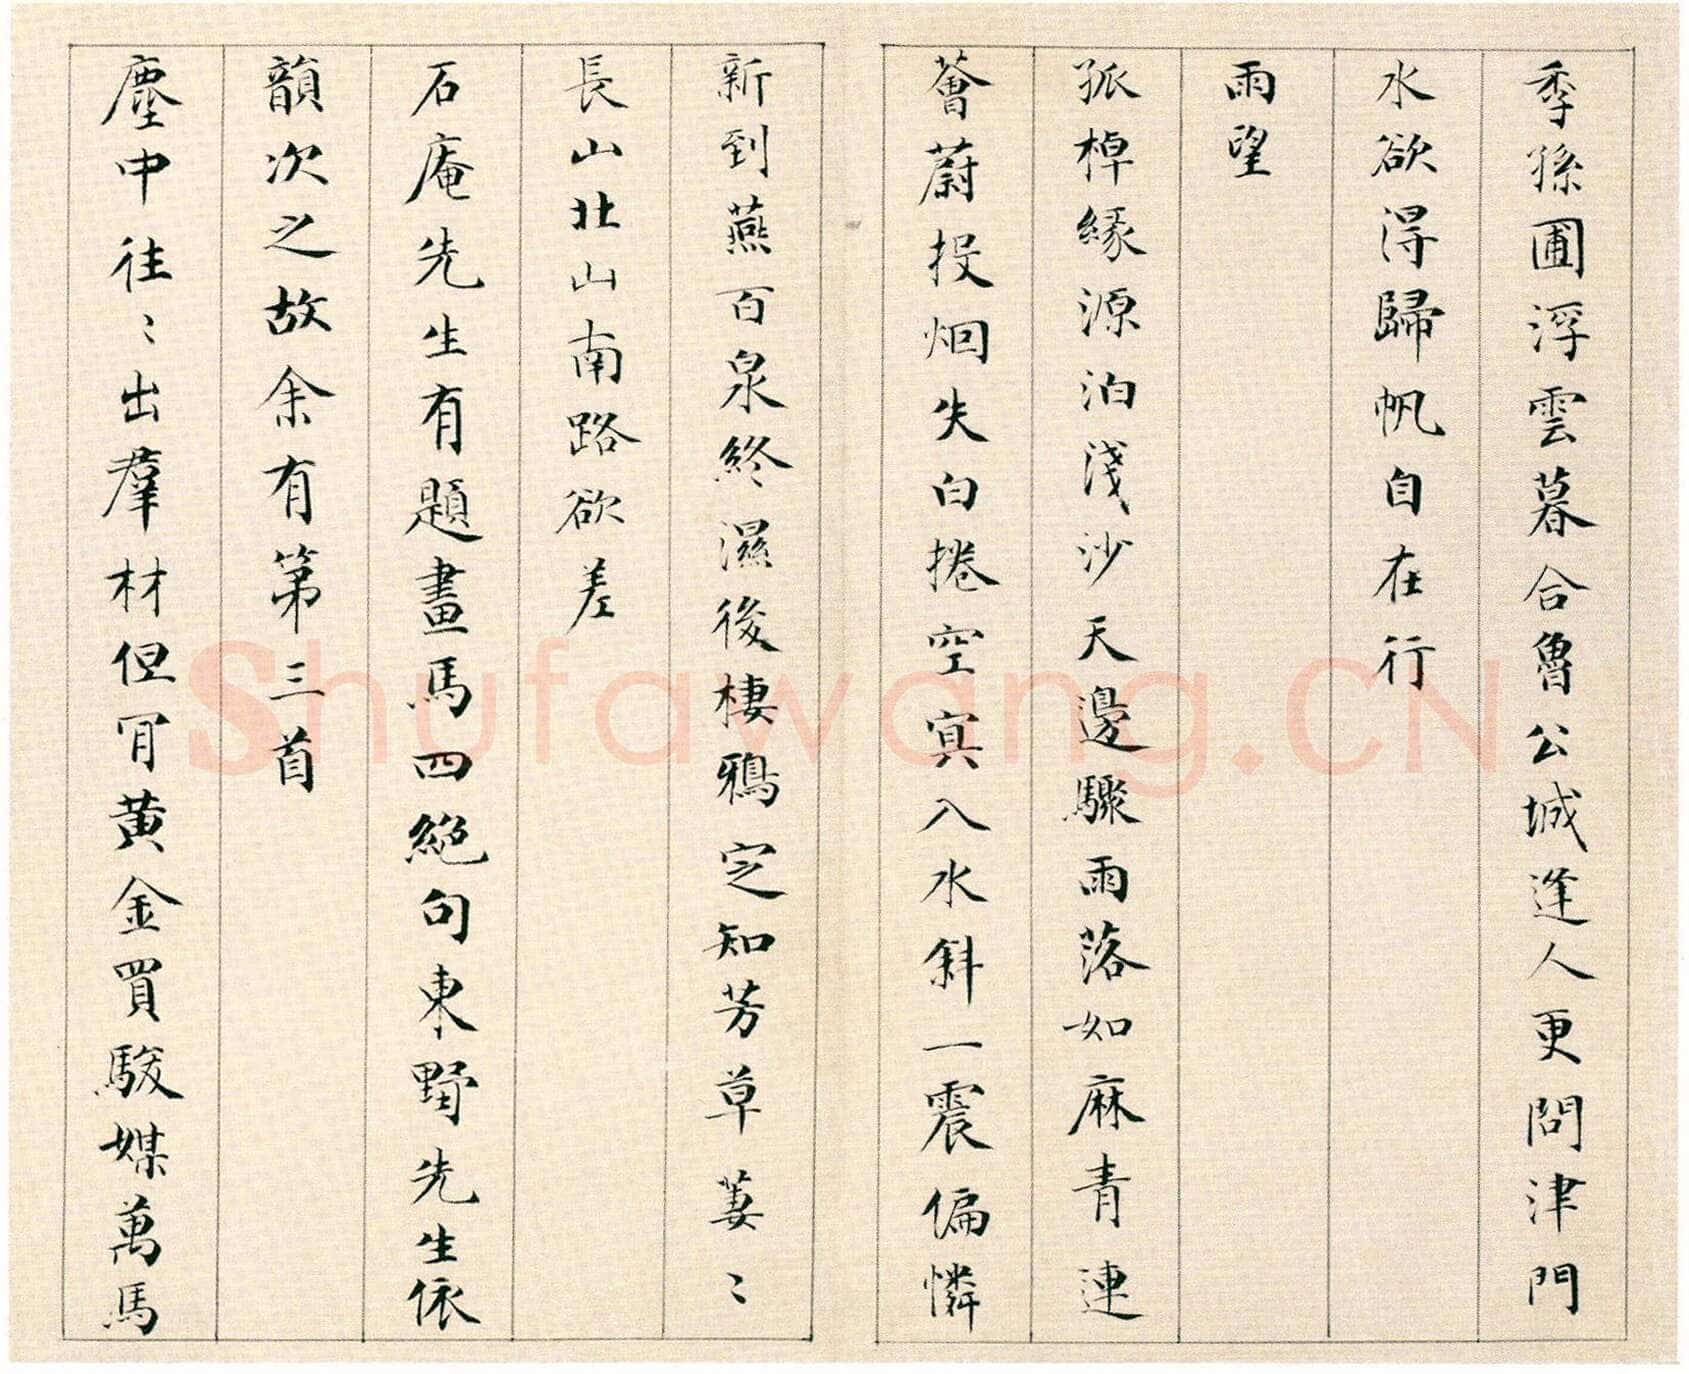 季孫圃浮雲暮合魯公城逢人更問津門
水欲得歸帆自在行
雨望
孤棹緣源泊淺沙天邊驟雨落如麻青連
薈蔚投烟失白捲空寞入水斜一震偏憐
新到燕百泉終濕後棲鴉定知芳草萋〻
長山北山南路欲差
石庵先生有題畫馬四絕句東野先生依
韻次之故余有第三首
塵中往〻出羣材但肎黃金買駿媒萬馬
Shufawang.CN